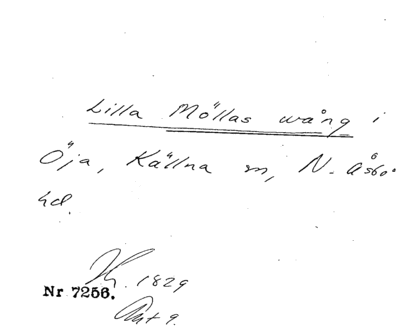 Lilla Möllas wång i
Öja, Källna sn, N. Åsbo
hd.
1829
Nr 7256.
Akt 9.